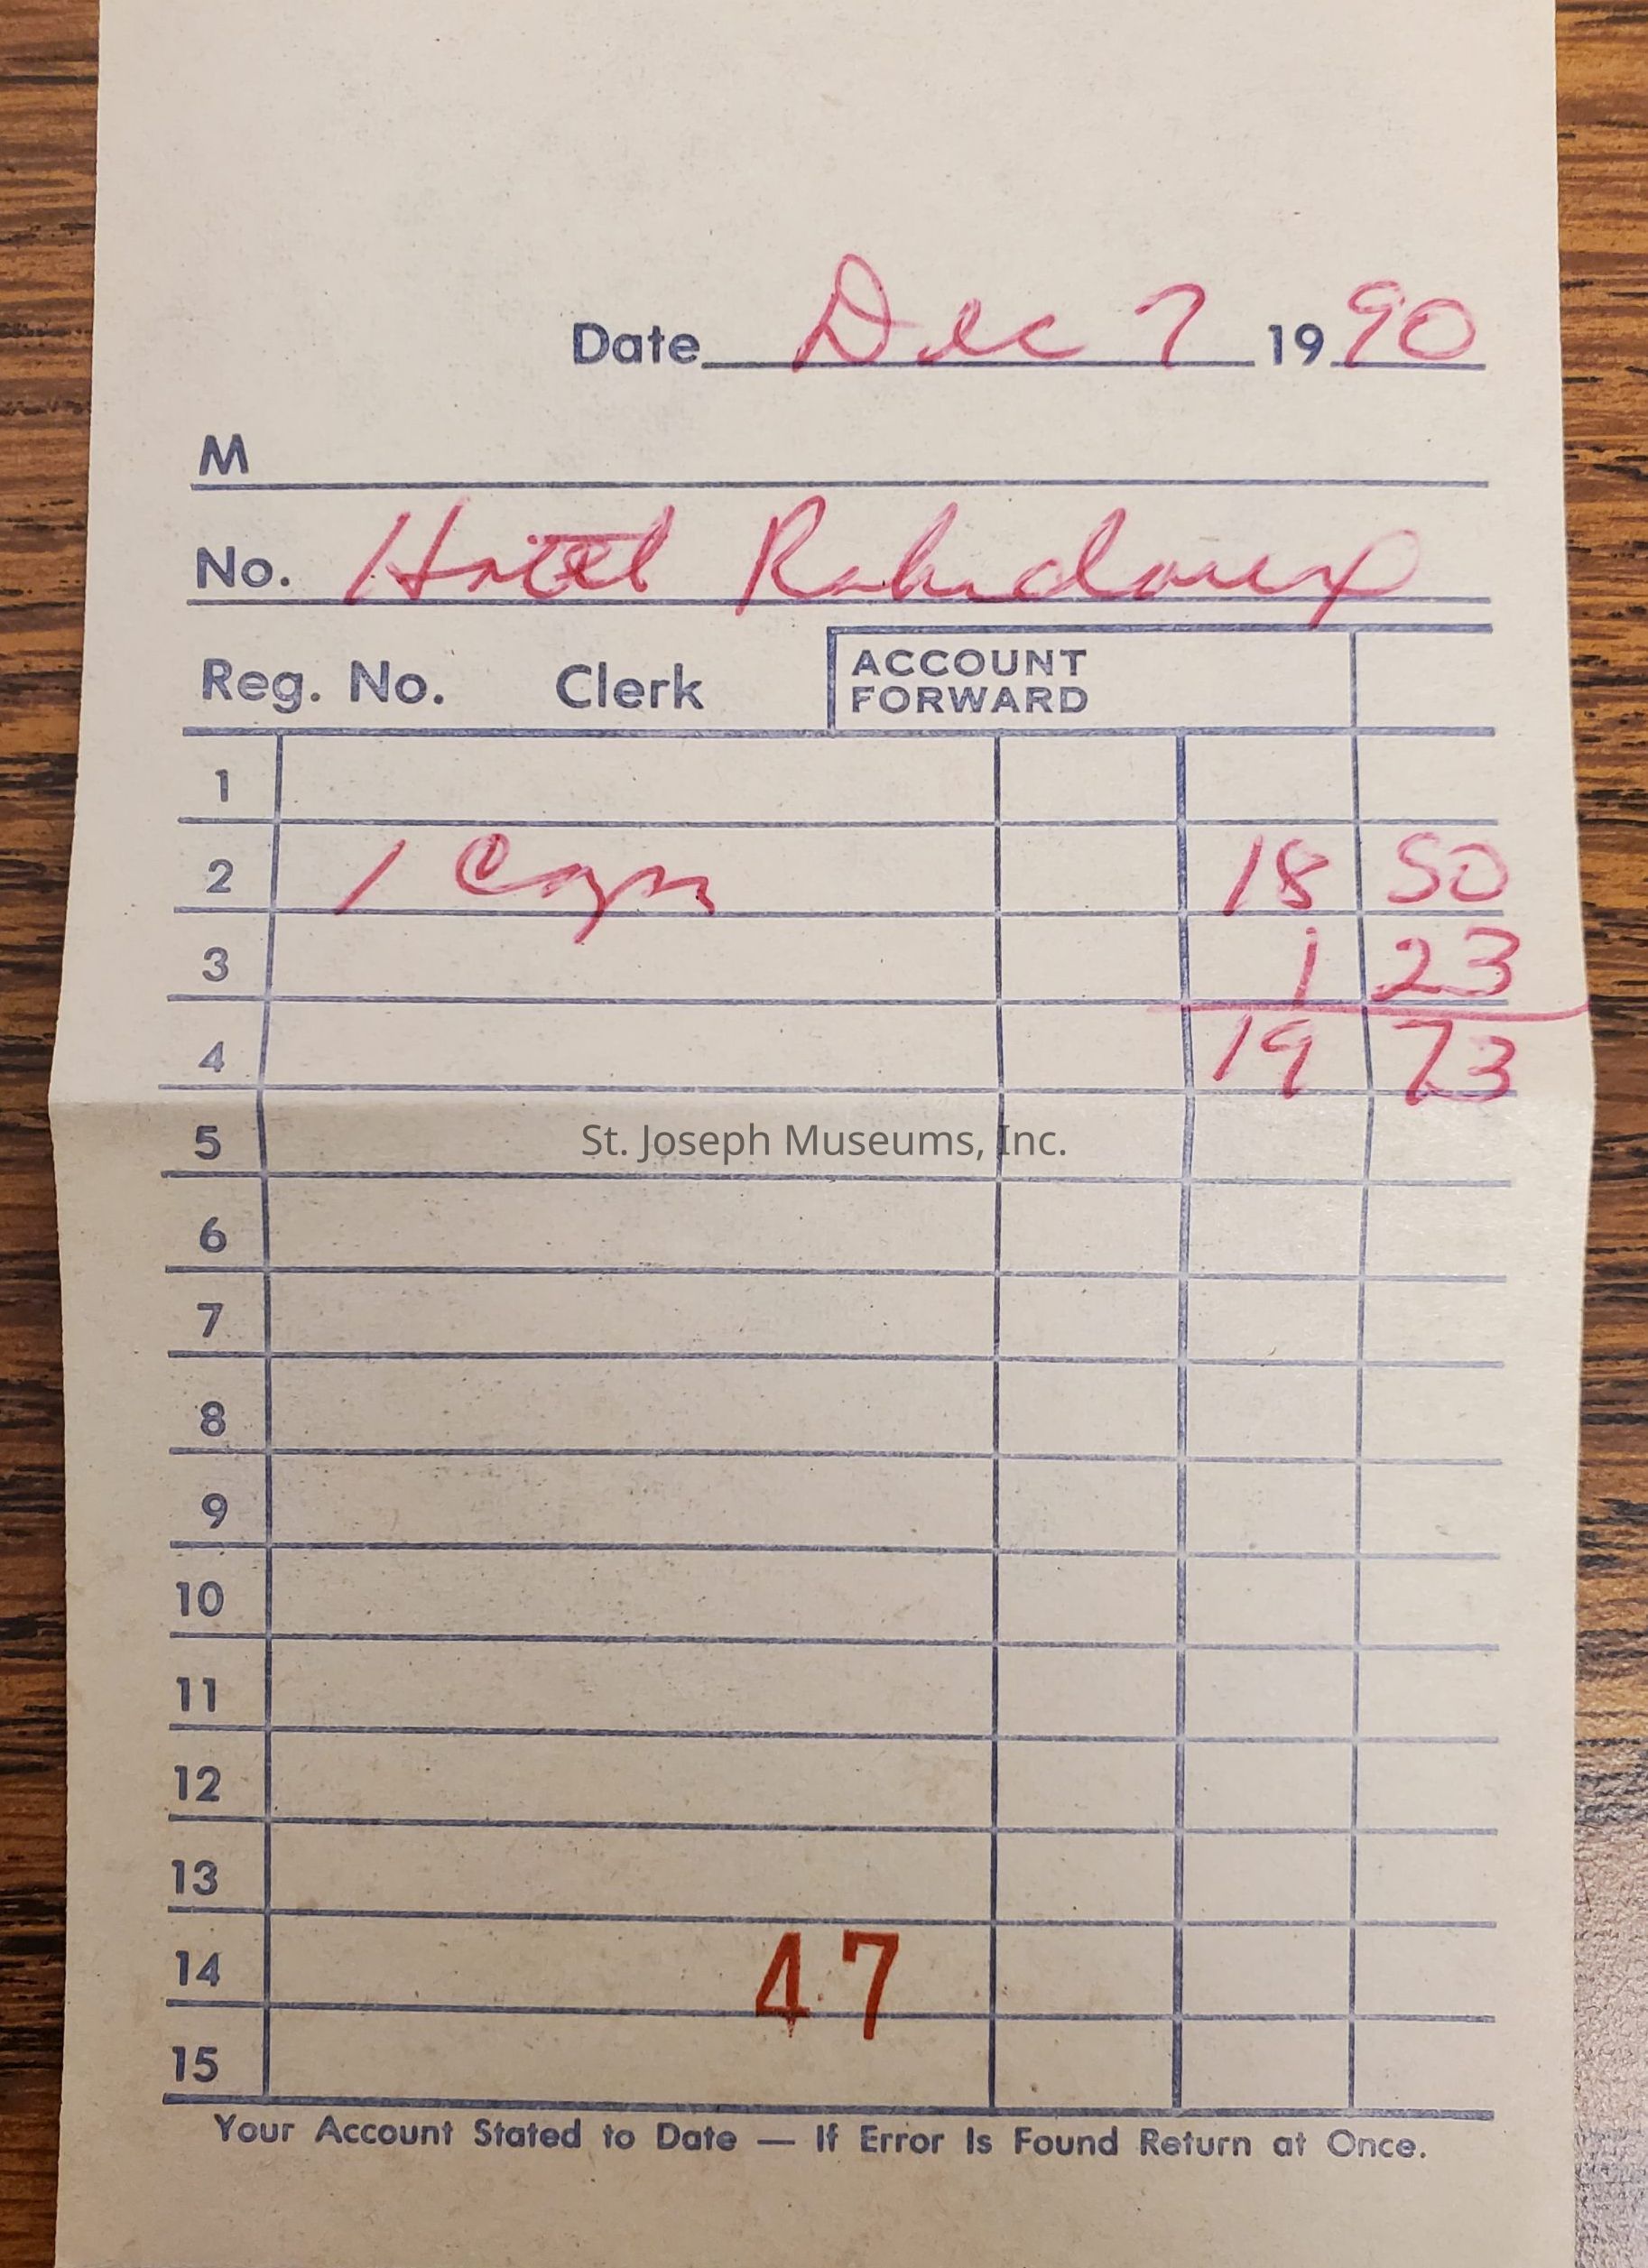 Date Dec 7 1990
M
No. Hotel Robidoux
Reg. No. Clerk ACCOUNT FORWARD
1
2 1 Copy 18 50
3 1 23
4 19 73
5
St. Joseph Museums, Inc.
6
7
8
9
10
11
12
13
14 47
15
Your Account Stated to Date — If Error Is Found Return at Once.